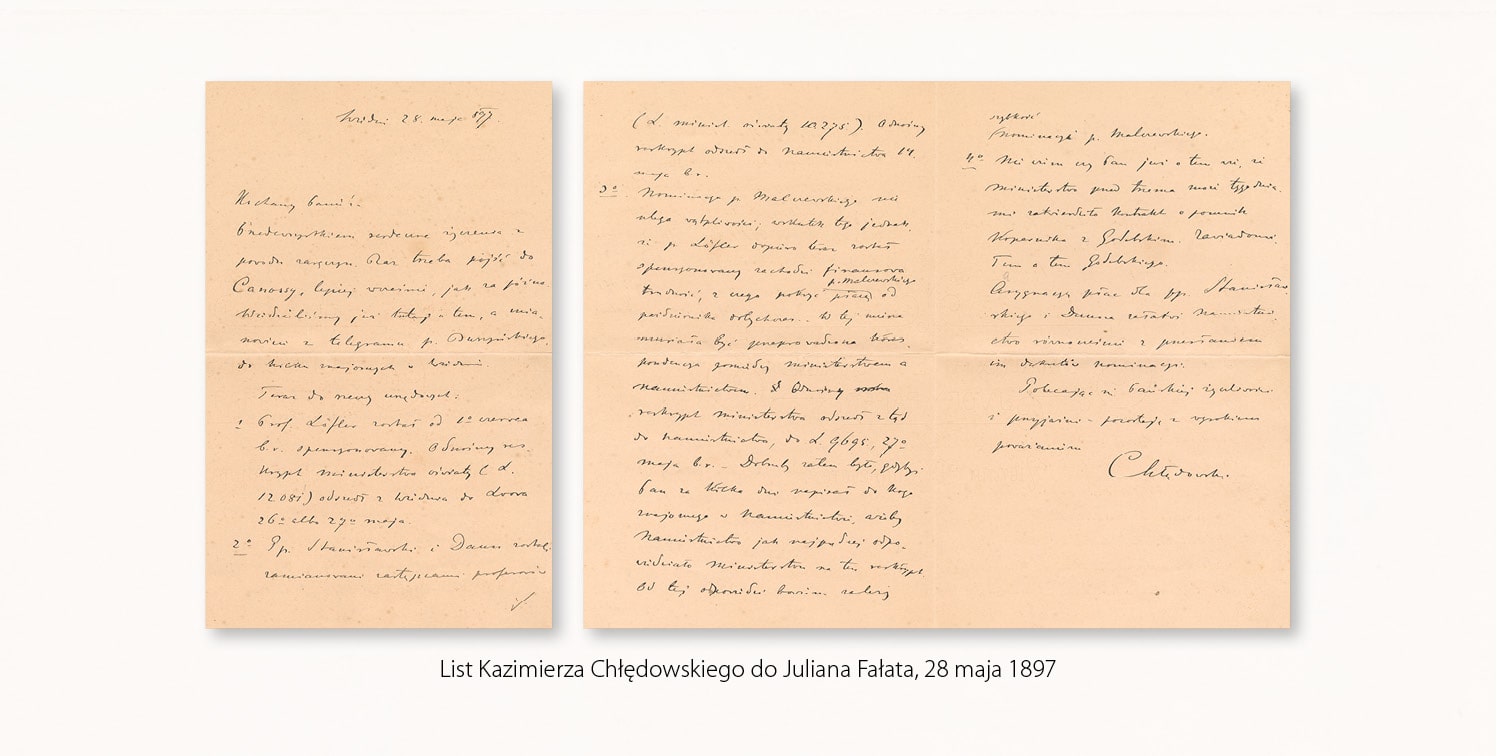 Wiedeń 28. maja 897.
Kochany Panie!
Przedewszystkiem serdeczne życzenia z
powodu zaręczyn. Raz trzeba pójść do
Canossy, lepiej wcześniej, jak za późno.
Wiedzieliśmy już tutaj o tem, a mia-
nowicie z telegramu p.
do kilku znajomych w Wiedniu.
Teraz do rzeczy urzędowych:
1 Prof. Löfler został od 1º czerwca
b.r. spensyonowany. Odnośny res-
krypt Ministerstwa oświaty (L.
12081) odszedł z Wiednia do Lwowa
26º albo 27go maja.
2º Pp. Stanisławski i Daun zostali
zamianowani zastępcami profesorów
./.
(L. minist. oświaty 10.275). Odnośny
reskrypt odszedł do Namiestnictwa 14.
maja b.r.
3º Nominacya p. Malczewskiego nie
ulega wątpliwości, wskutek tego jednak,
że p. Löfler dopiero teraz został
spensyonowany zachodzi finansowa
p. Malczewskiego
trudność, z czego pokryć płacę od
października dotychczas. W tej mierze
musiała być przeprowadzona kores-
pondencya pomiędzy ministerstwem a
Namiestnictwem. Odnośny
reskrypt Ministerstwa odszedł ztąd
do Namiestnictwa, do L. 9695, 27go
maja b.r. – Dobrze zatem było, gdyby
Pan za kilka dni napisał do kogo
znajomego w Namiestnictwie, ażeby
Namiestnictwo jak najprędzej odpo-
wiedziało Ministerstwu na ten reskrypt.
Od tej odpowiedzi bowiem zależy
szybkość
nominacyi p. Malczewskiego.
4º Nie wiem czy Pan już o tem wie, że
Ministerstwo przed trzema może tygodnia-
mi zatwierdziło kontrakt o pomnik
Kopernika z Godebskim. Zawiadomi
Pan o tem Godebskiego.
Asygnacyą płac dla pp. Stanisław-
skiego i Dauna załatwi Namiestni-
ctwo równocześnie z przesłaniem
im dekretów nominacyi.
Polecając się Pańskiej życzliwości
i przyjaźni – pozostaję z wysokiem
poważaniem
Chłędowski.
List Kazimierza Chłędowskiego do Juliana Fałata, 28 maja 1897